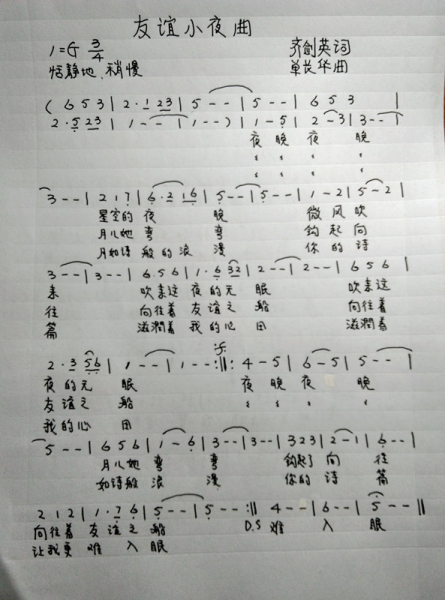 友谊小夜曲
1=G 3/4 齐剑英词
恬静地、稍慢 单长华曲
( 6 5 3 | 2· 1 23 | 5 - - | 5 - - | 6 5 3 |
2· 5 23 | 1 - - | 1 - - ) | 1 - 5 | 2 - 3 | 3 - - |
夜 晚 夜 晚
3 - - | 2 1 7 | 6· 2 16 | 5 - - | 5 - - | 1 - 2 | 5 - 2 |
星空的 夜 晚 微 风 吹
月儿她 弯 弯 钩 起 向
月如诗 般的 浪 漫 你 的 诗
3 - - | 3 - - | 6 5 6 | 1· 6 32 | 2 - - | 2 - - | 6 5 6 |
来 吹来这 夜的无 眠 吹来这
往 向往着 友谊之 船 向往着
篇 滋润着 我的心 田 滋润着
2· 3 56 | 1 - - | 1 - - :||: 4 - 5 | 6 - 5 | 5 - - |
夜的无 眠 夜 晚 夜 晚
友谊之 船
我的心 田
5 - - | 6 5 6 | 1 - 6 | 3 - - | 3 - - | 3 2 3 | 2 - 1 | 6 - - |
月儿她 弯 弯 钩起了 向 往
如诗般 浪 漫 你的 诗 篇
2 1 2 | 1· 7 6 | 5 - - | 5 - - :|| 4 - - | 6 - - | 5 - - |
向往着 友谊之 船 D.S 难 入 眠
让我更 难 入 眠